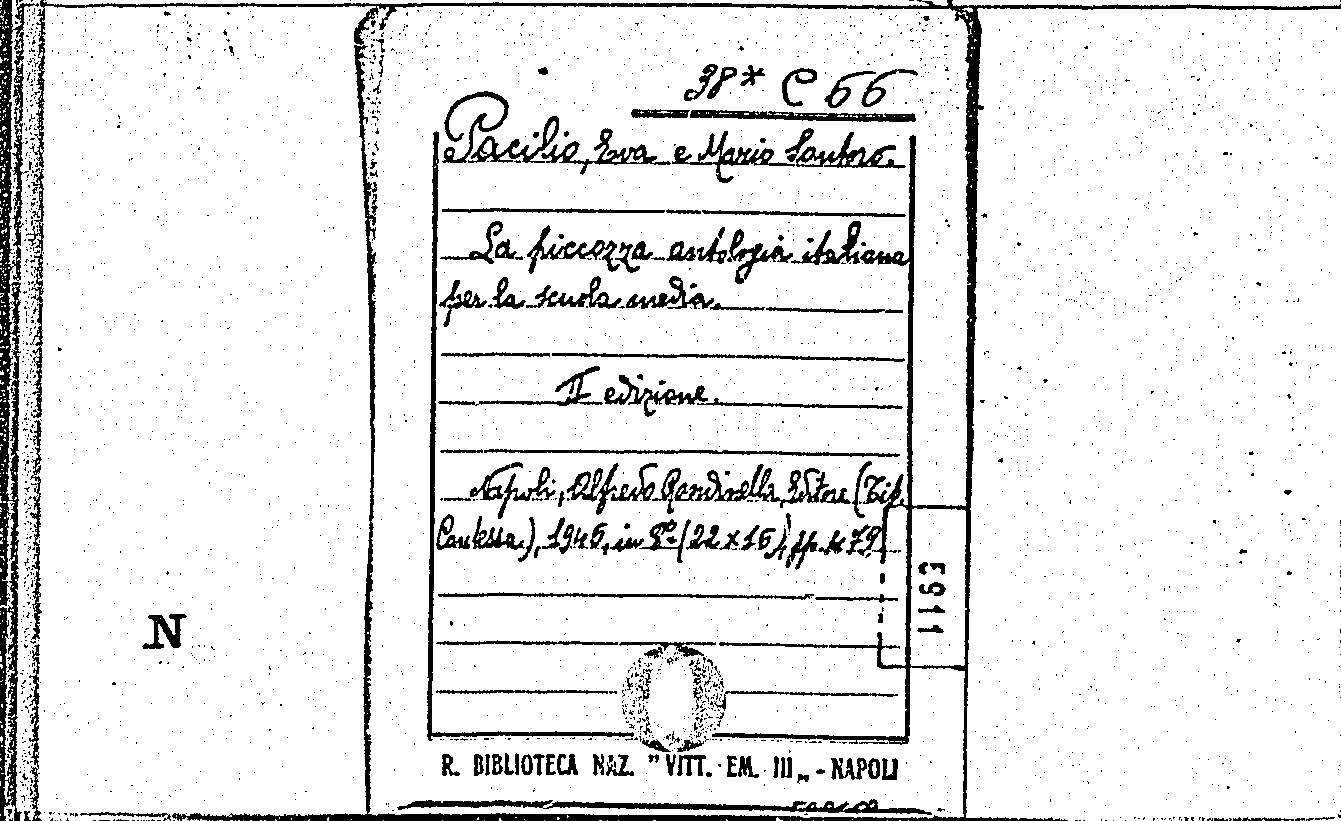 38* C 66
Pacilio, Eva e Mario Santoro.
La piccozza antologia italiana
per la scuola media.
II edizione.
Napoli, Alfredo Rondinella, Editore (Tip.
Contessa.), 1945, in 8º (22 x 15), pp. 479
E911
N
R. BIBLIOTECA NAZ. "VITT. EM. III„ - NAPOLI